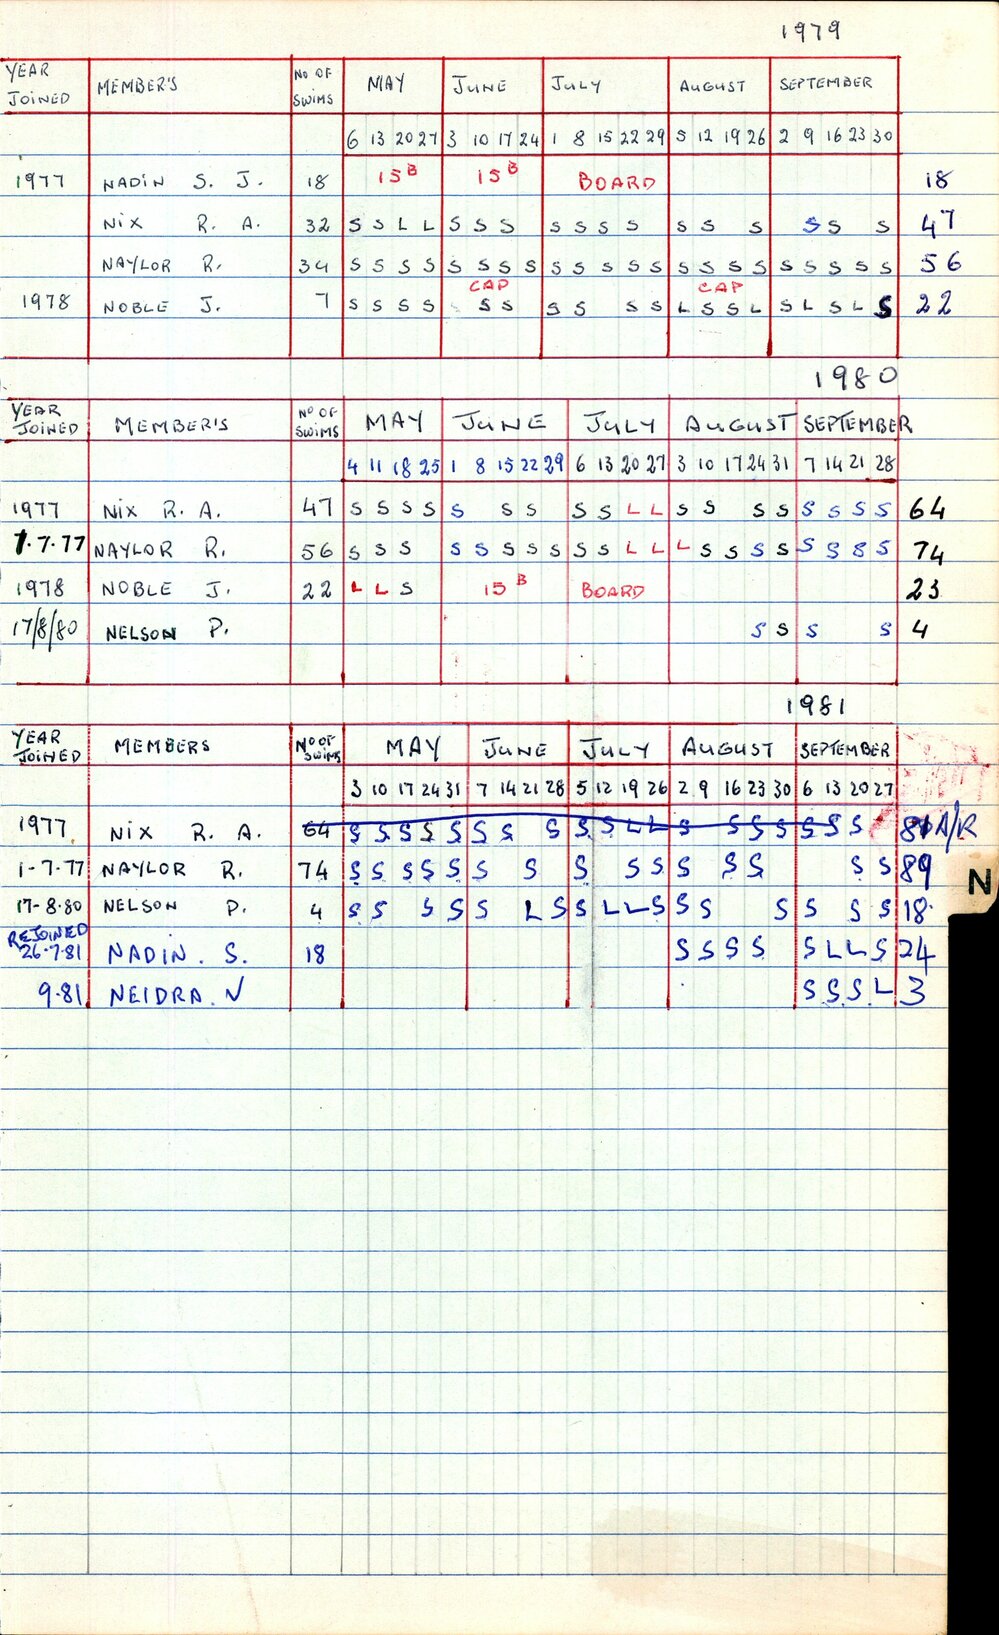 1979
YEAR JOINED MEMBER'S No OF SWIMS MAY JUNE JULY AUGUST SEPTEMBER
6 13 20 27 3 10 17 24 1 8 15 22 29 5 12 19 26 2 9 16 23 30
1977 NADIN S. J. 18 15 B 15 B BOARD 18
NIX R. A. 32 S S L L S S S S S S S S S S S S S 47
NAYLOR R. 34 S S S S S S S S S S S S S S S S S S S S S S 56
CAP CAP
1978 NOBLE J. 7 S S S S S S S S S S L S S L S L S L S 22
1980
YEAR JOINED MEMBER'S No OF SWIMS MAY JUNE JULY AUGUST SEPTEMBER
4 11 18 25 1 8 15 22 29 6 13 20 27 3 10 17 24 31 7 14 21 28
1977 NIX R. A. 47 S S S S S S S S S L L S S S S S S S S 64
1.7.77 NAYLOR R. 56 S S S S S S S S S S L L L S S S S S S S S 74
1978 NOBLE J. 22 L L S 15 B BOARD 23
17/8/80 NELSON P. S S S S 4
1981
YEAR JOINED MEMBERS No OF SWIMS MAY JUNE JULY AUGUST SEPTEMBER
3 10 17 24 31 7 14 21 28 5 12 19 26 2 9 16 23 30 6 13 20 27
1977 NIX R. A. 64 S S S S S S S S S S L L S S S S S S S 81 A/R
1-7.77 NAYLOR R. 74 S S S S S S S S S S S S S S S S 89
17-8.80 NELSON P. 4 S S S S S L S S L L S S S S S S S 18
REJOINED
26.7.81 NADIN. S. 18 S S S S S L L S 24
9.81 NEIDRA. N S S S L 3
N